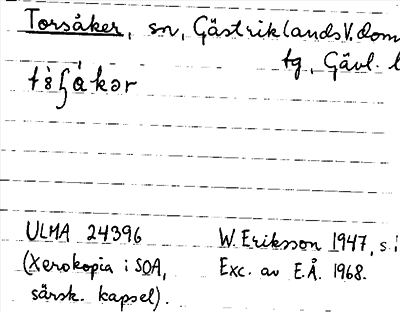 Torsåker, sn, Gästriklands V. dom
tg, Gävl. l
ULMA 24396
(Xerokopia i SOA,
särsk. kapsel).
W. Eriksson 1947, s.
Exc. av E.Å. 1968.